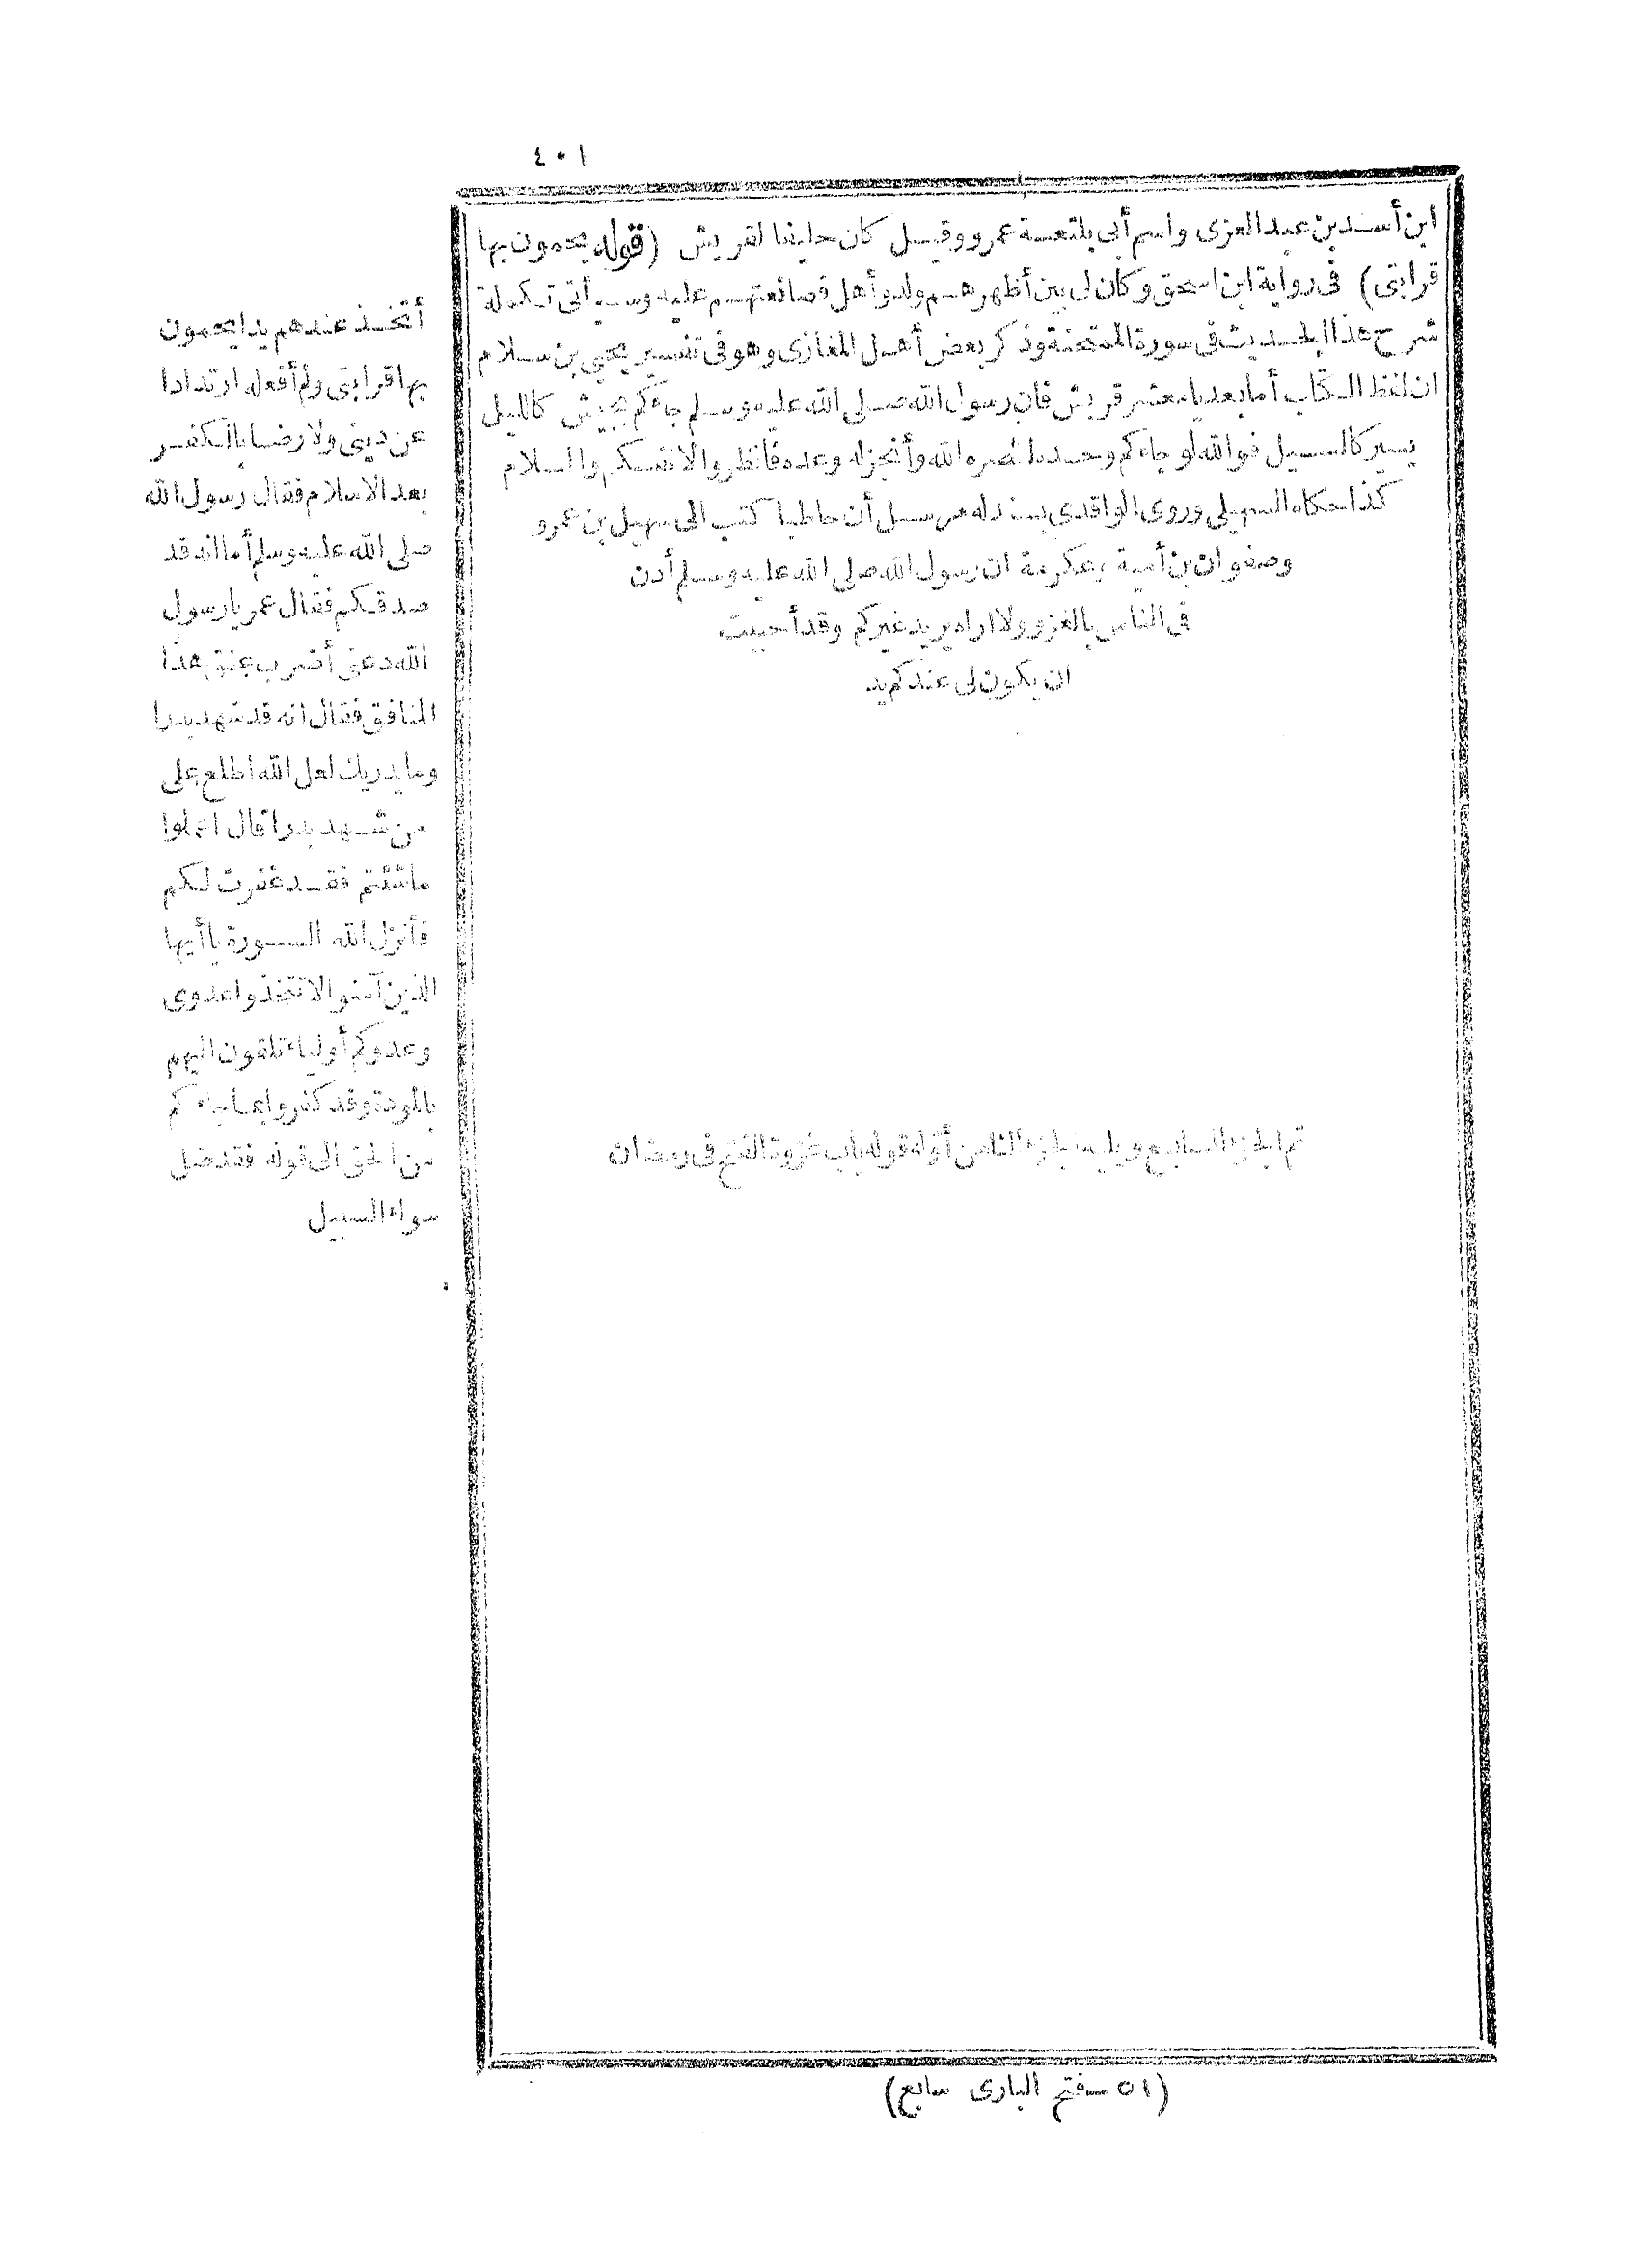 ٤٠١
ابن أسد بن عبد العزى واسم أبي بلتعة عمرو وقيل كان حليفا لقريش (قوله يحمون بها
قرابتى) فى رواية ابن اسحق وكان لى بين أظهرهم ولد وأهل فصانعتهم عليه وسيأتى تكملة
شرح هذا الحديث فى سورة الممتحنة وذكر بعض أهل المغازى وهو فى تفسير يحيى بن سلام
ان لفظ الكتاب أما بعد يا معشر قريش فان رسول الله صلى الله عليه وسلم جاءكم بجيش كالليل
يسير كالسيل فوالله لو جاءكم وحده لنصره الله وأنجز له وعده فانظروا لانفسكم والسلام
كذا حكاه السهيلى وروى الواقدى بسند له مرسل أن حاطبا كتب الى سهيل بن عمرو
وصفوان بن أمية وعكرمة ان رسول الله صلى الله عليه وسلم أذن
فى الناس بالغزو ولا اراه يريد غيركم وقد أحببت
ان يكون لى عندكم يد
تم الجزء السابع ويليه الجزء الثامن أوّله قوله باب غزوة الفتح فى رمضان
أتخذ عندهم يدا يحمون
بها قرابتى ولم أفعله ارتدادا
عن دينى ولا رضا بالكفر
بعد الاسلام فقال رسول الله
صلى الله عليه وسلم أما انه قد
صدقكم فقال عمر يا رسول
الله دعنى أضرب عنق هذا
المنافق فقال انه قد شهد بدرا
وما يدريك لعل الله اطلع على
من شهد بدرا قال اعملوا
ما شئتم فقد غفرت لكم
فأنزل الله السورة يا أيها
الذين آمنوا لا تتخذوا عدوى
وعدوكم أولياء تلقون اليهم
بالمودة وقد كفروا بما جاءكم
من الحق الى قوله فقد ضل
سواء السبيل
(٥١ - فتح البارى سابع)